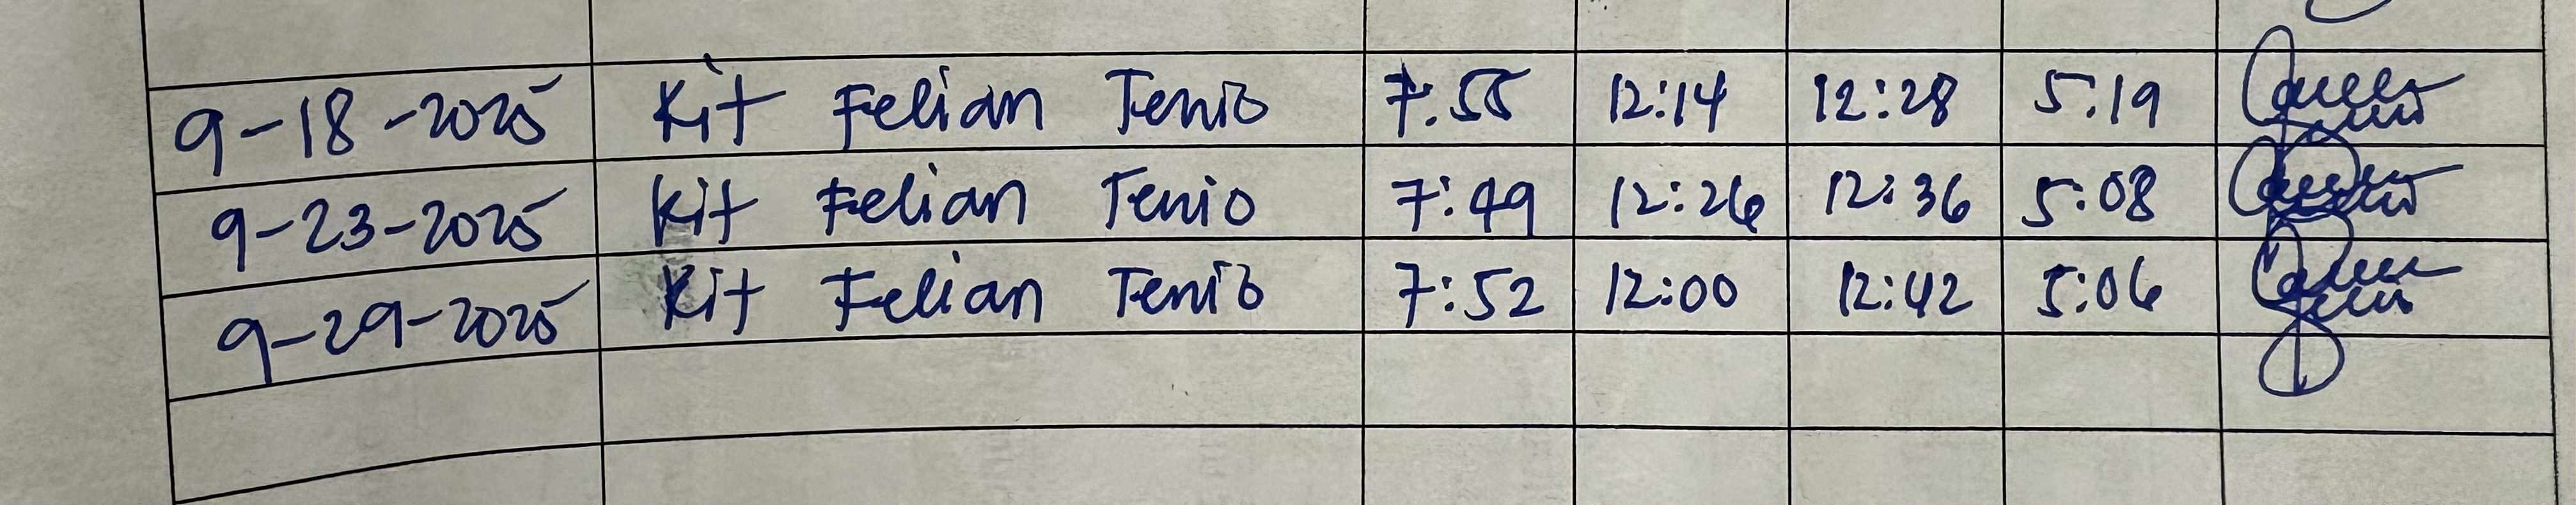 9-18-2025 Kit Felian Tenio 7:55 12:14 12:28 5:19
9-23-2025 Kit Felian Tenio 7:49 12:26 12:36 5:08
9-29-2025 Kit Felian Tenio 7:52 12:00 12:42 5:06